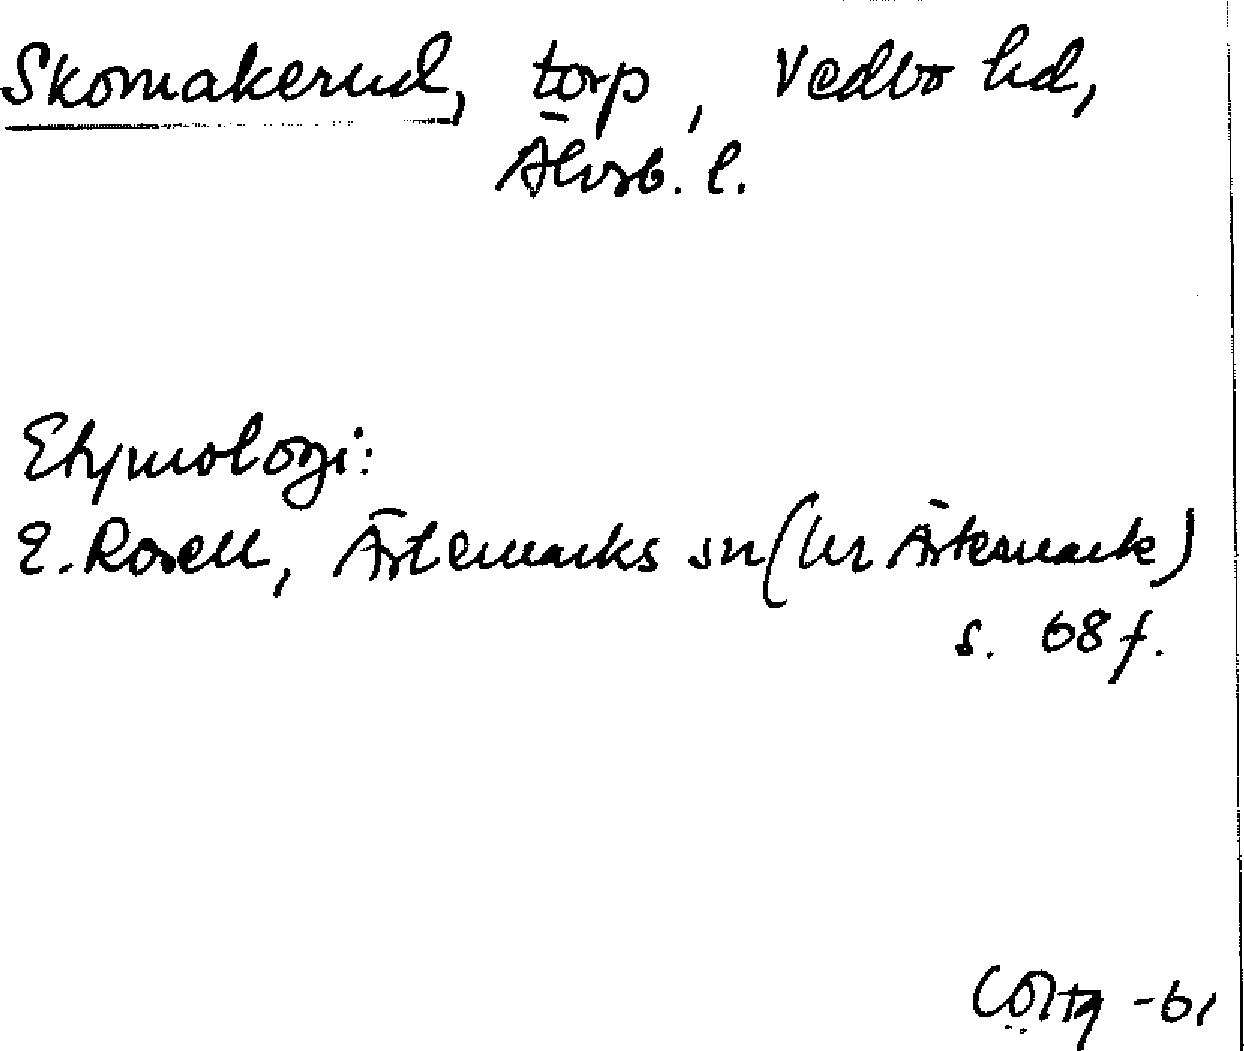 Skomakerud, torp, Vedbo hd,
Älvsb. l.
Etymologi:
E. Rosell, Ärtemarks sn (ur Ärtemark)
s. 68 f.
-61